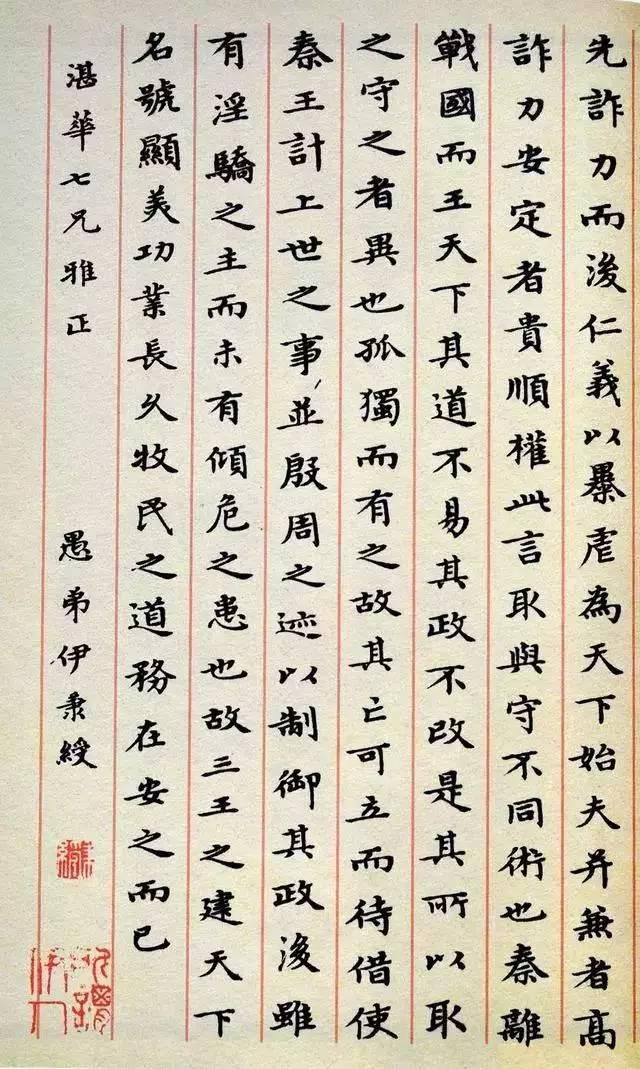 先詐力而後仁義以㬥虐為天下始夫并兼者高
詐力安定者貴順權此言取與守不同術也秦離
戰國而王天下其道不易其政不改是其所以取
之守之者異也孤獨而有之故其亡可立而待借使
秦王計上世之事並殷周之迹以制御其政後雖
有淫驕之主而未有傾危之患也故三王之建天下
名號顯美功業長久牧民之道務在安之而已
湛華七兄雅正
愚弟伊秉綬